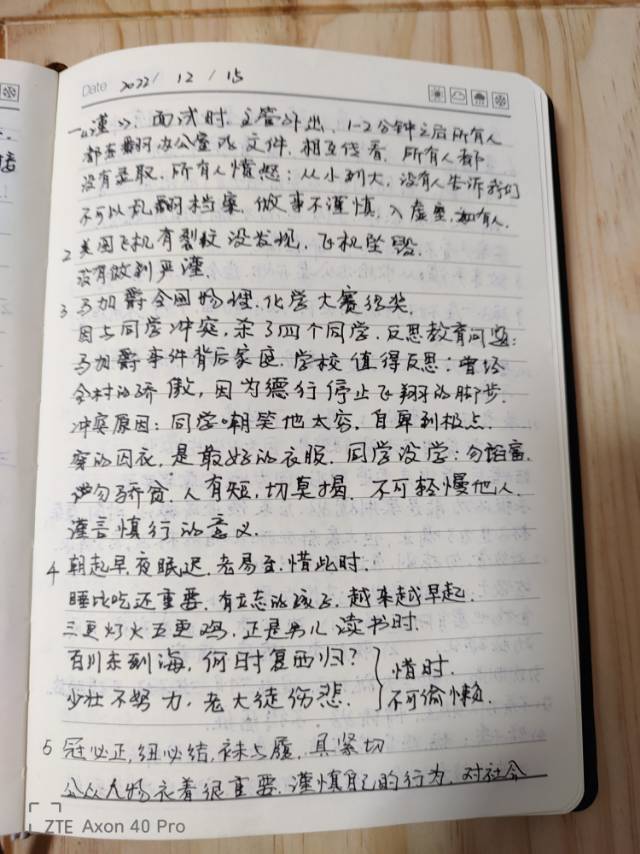 接
Date 2022/ 12 / 15
一《谨》. 面试时, 主管外出, 1-2分钟之后所有人
都在翻阅办公室的文件, 相互传看. 所有人都
没有录取, 所有人愤怒: 从小到大, 没有人告诉我们
不可以乱翻档案, 做事不谨慎, 入虚室, 如有人.
2 美国飞机有裂纹没发现, 飞机坠毁,
没有做到严谨.
3 马加爵全国物理. 化学大赛得奖.
因与同学冲突, 杀了四个同学. 反思教育问题:
马加爵事件背后家庭. 学校值得反思: 曾经
全村的骄傲, 因为德行停止飞翔的脚步.
冲突原因: 同学嘲笑他太穷, 自卑到极点.
穿的囚衣, 是最好的衣服. 同学没学: 勿谄富.
勿骄贫. 人有短, 切莫揭. 不可轻慢他人.
谨言慎行的意义.
4 朝起早, 夜眠迟. 老易至, 惜此时.
睡比吃还重要. 有立志的孩子, 越来越早起.
三更灯火五更鸡, 正是男儿读书时.
百川东到海, 何时复西归?
少壮不努力, 老大徒伤悲.
惜时.
不可偷懒.
5 冠必正, 纽必结, 袜与履, 具紧切
公众人物衣着很重要. 谨慎自己的行为, 对社会
ZTE Axon 40 Pro